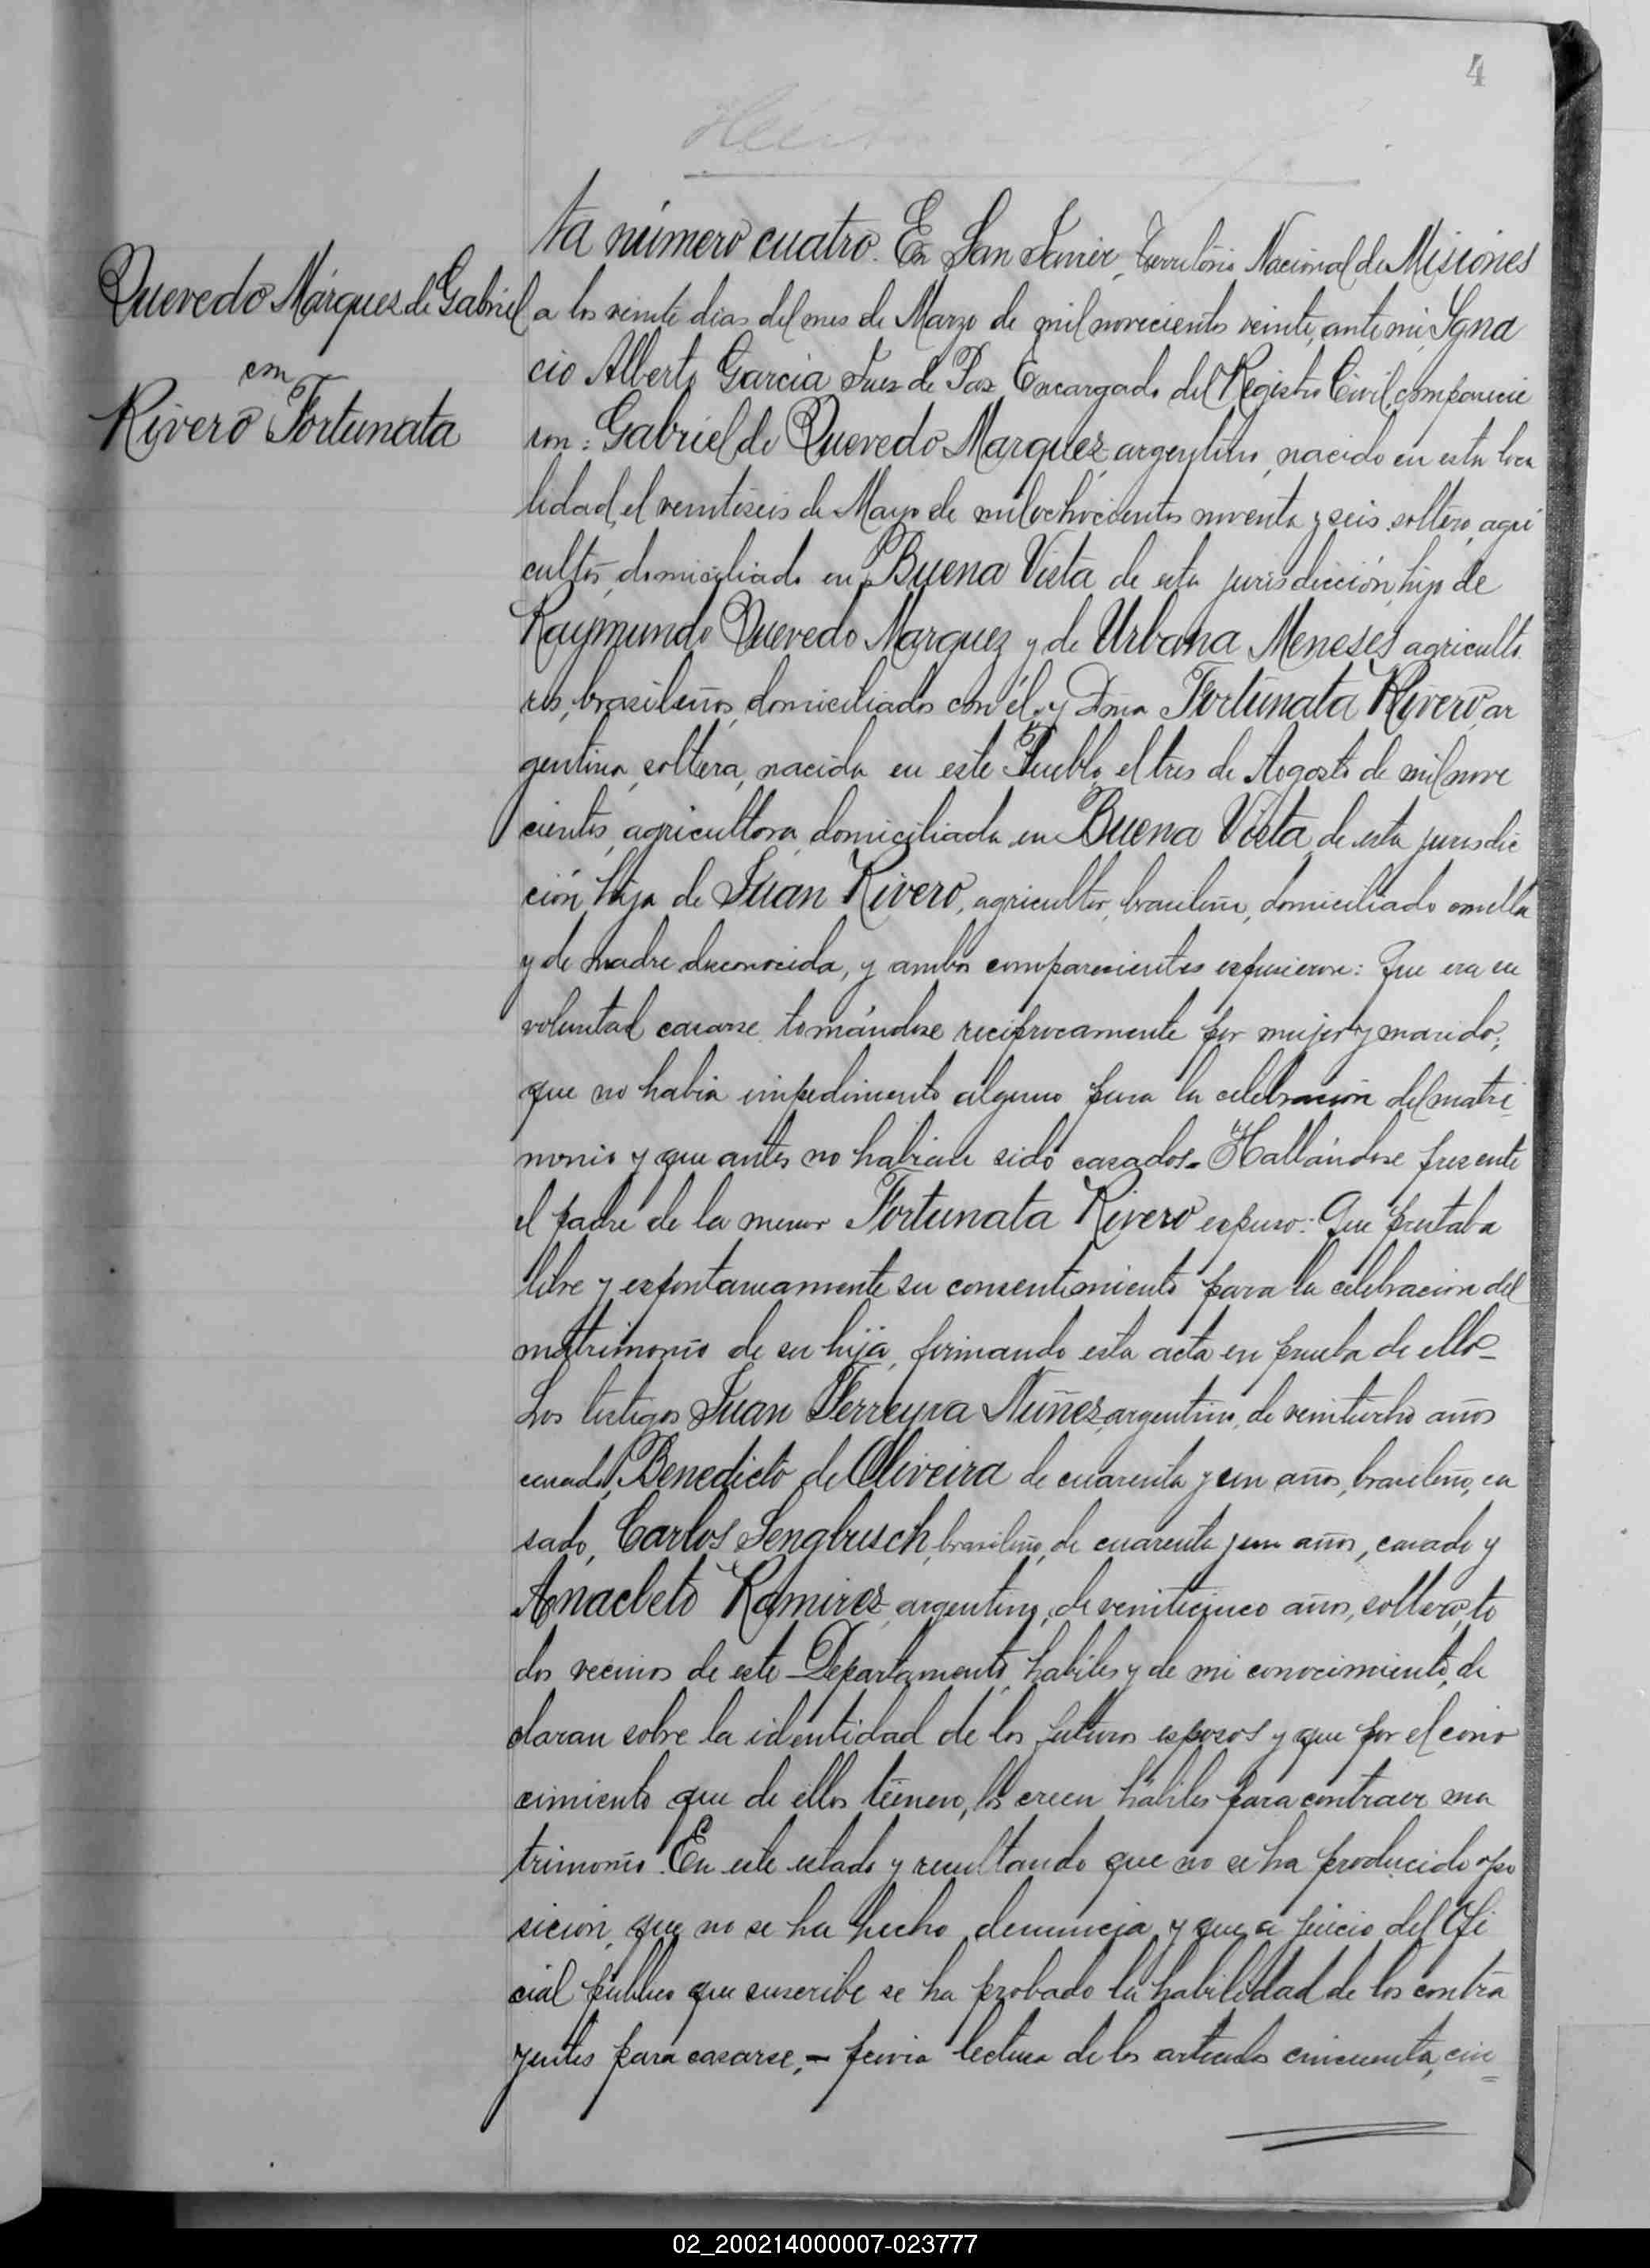 4
Quevedo Márquez de Gabriel
con
Rivero Fortunata
ta número cuatro. En San Javier, Territorio Nacional de Misiones
a los veinte dias del mes de Marzo de mil novecientos veinte, ante mi, Igna
cio Alberto Garcia Juez de Paz Encargado del Registro Civil, comparecie
ron: Gabriel de Quevedo Marquez, argentino, nacido en esta loca
lidad, el veintiseis de Mayo de mil ochocientos noventa y seis, soltero, agri
cultor, domiciliado en Buena Vista de esta jurisdicción, hijo de
Raymundo Quevedo Marquez y de Urbana Meneses agriculto
res, brasileños, domiciliados con él, y Doña Fortunata Rivero, ar
gentina, soltera, nacida en este Pueblo, el tres de Agosto de mil nove
cientos, agricultora, domiciliada en Buena Vista, de esta jurisdic
ción, hija de Juan Rivero, agricultor, brasileño, domiciliado con ella
y de madre desconocida, y ambos comparecientes expusieron: Que era su
voluntad casarse tomándose reciprocamente por mujer y marido,
que no habia impedimento alguno para la celebración del matri
monio y que antes no habian sido casados. Hallándose presente
el padre de la menor Fortunata Rivero expuso: Que prestaba
libre y espontaneamente su consentimiento para la celebracion del
matrimonio de su hija, firmando esta acta en prueba de ello_
Los testigos Juan Ferreyra Nuñez, argentino, de veintiocho años
casado, Benedicto de Oliveira de cuarenta y un años, brasileño, ca
sado, Carlos Sengbusch, brasileño, de cuarenta y un años, casado y
Anacleto Ramirez, argentino, de veinticinco años, soltero, to
dos vecinos de este Departamento, habiles y de mi conocimiento, de
claran sobre la identidad de los futuros esposos y que por el cono
cimiento que de ellos tienen, los creen hábiles para contraer ma
trimonio. En este estado y resultando que no se ha producido opo
sicion, que no se ha hecho denuncia, y que a juicio del Ofi
cial publico que suscribe se ha probado la habilidad de los contra
yentes para casarse, - previa lectura de los articulos cincuenta, cin
02_200214000007-023777